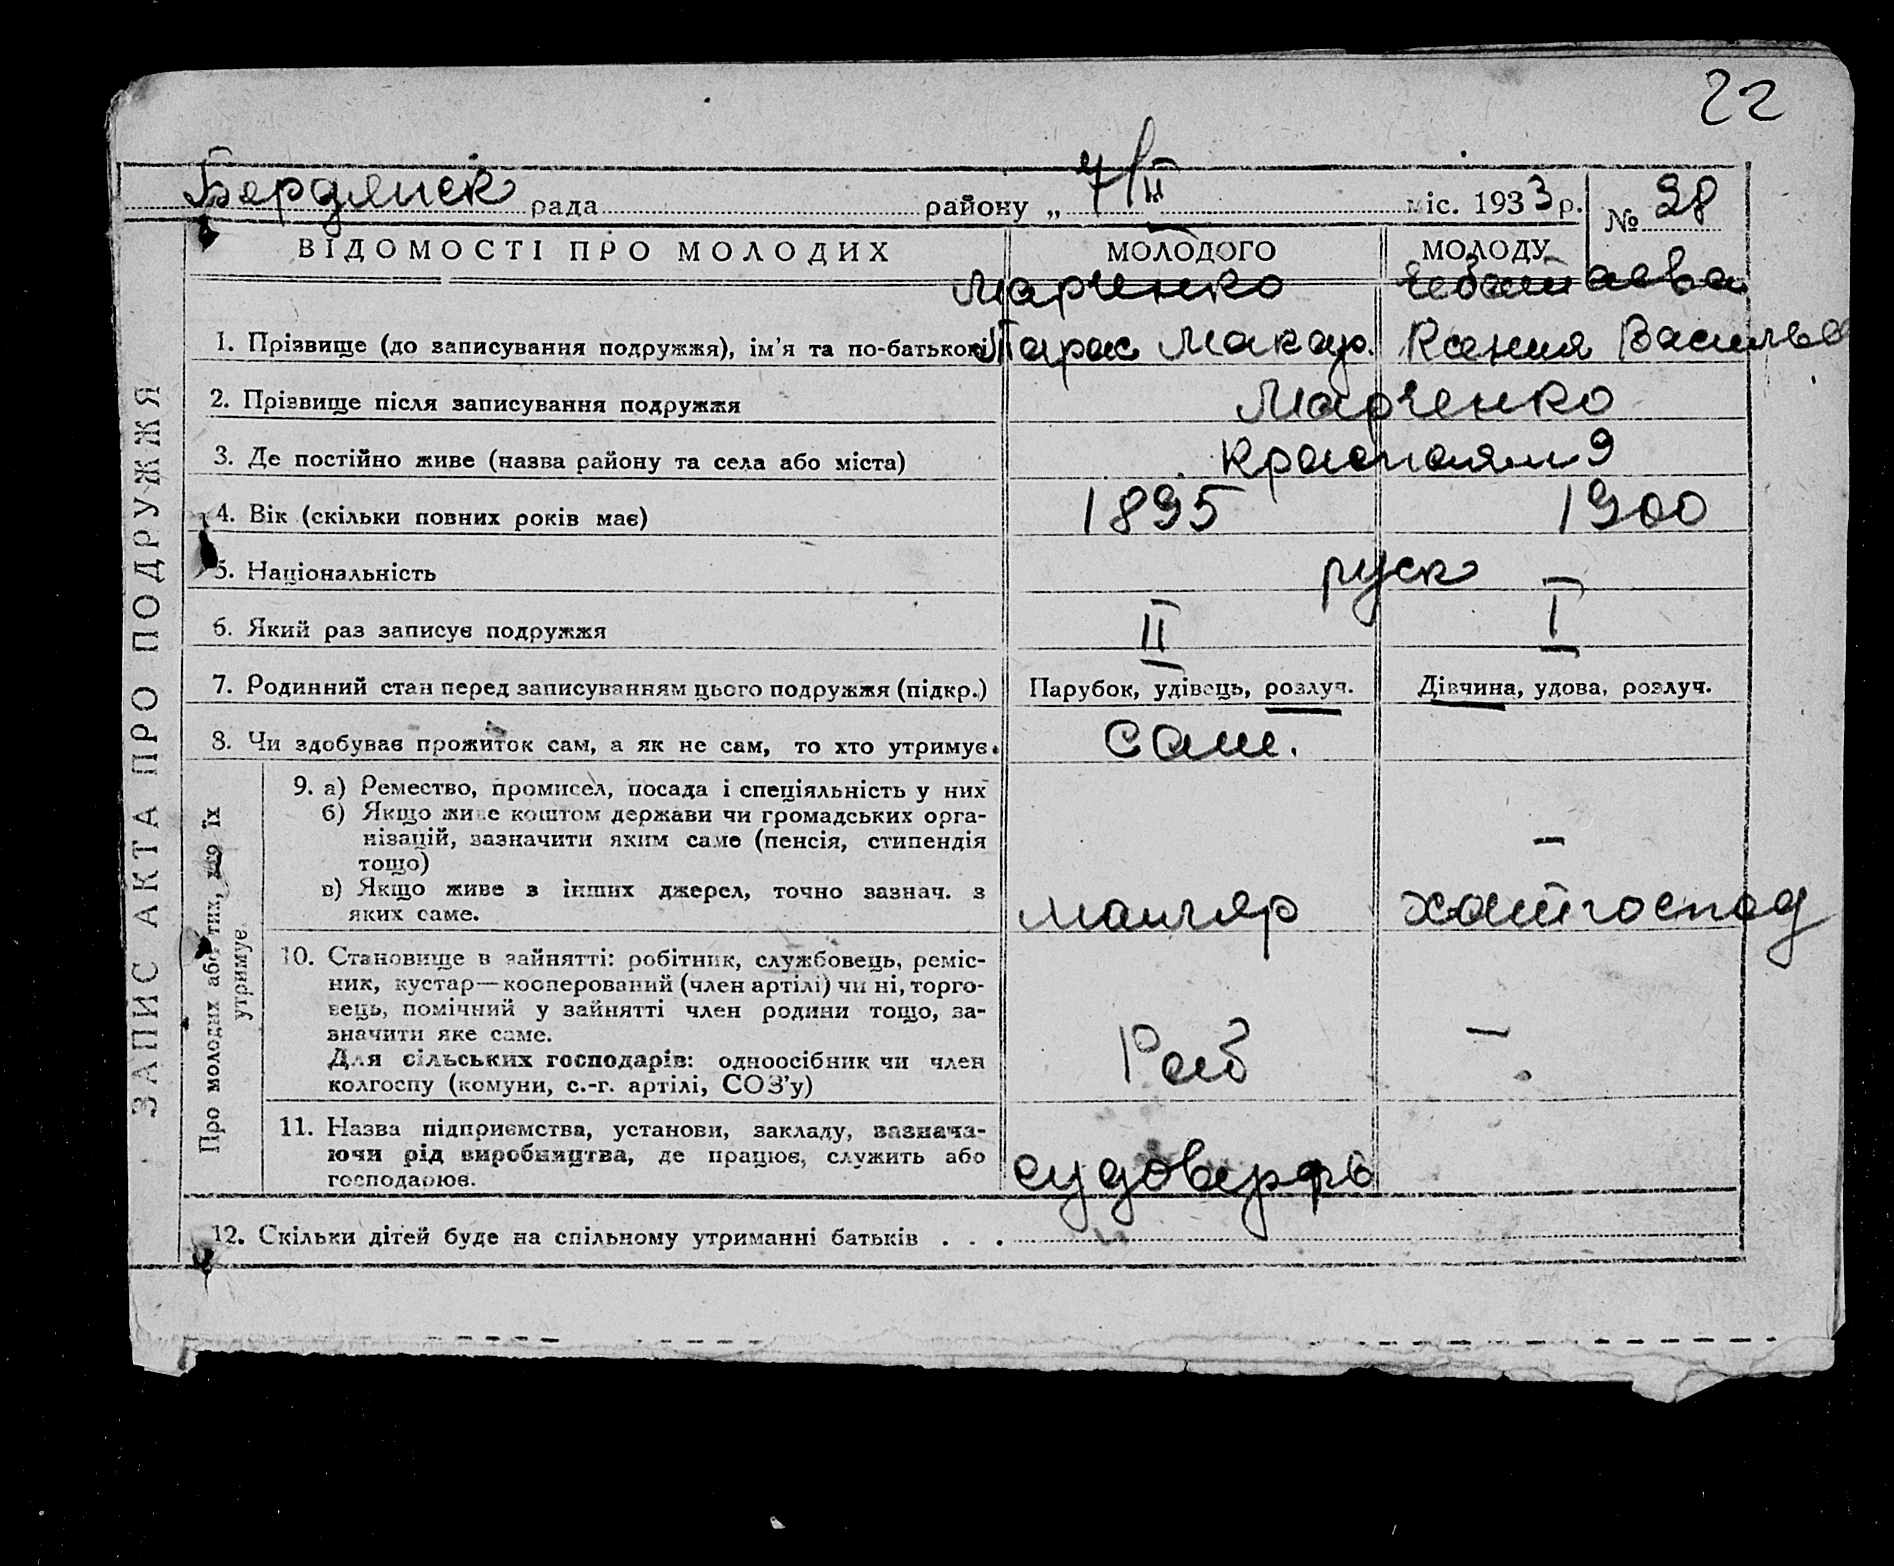 22
Бердянск рада района „ 7/II міс. 1933 р. № 98
ВІДОМОСТІ ПРО МОЛОДИХ МОЛОДОГО МОЛОДУ
Марченко
1. Прізвище (до записування подружжя), ім'я та по-батькові Тарас Макар. Ксения Василье
2. Прізвище після записування подружжя Марченко
3. Де постійно живе (назва району та села або міста) 9
4. Вік (скільки повних років має) 1895 1900
5. Національність руск
6. Який раз записує подружжя II I
7. Родинний стан перед записуванням цього подружжя (підкр.) Парубок, удівець, розлуч. Дівчина, удова, розлуч.
8. Чи здобуває прожиток сам, а як не сам, то хто утримує. сам.
9. а) Ремество, промисел, посада і спеціяльність у них
б) Якщо живе коштом держави чи громадських орга-
нізацій, зазначити яким саме (пенсія, стипендія –
тощо)
в) Якщо живе з інших джерел, точно зазнач. з
яких саме. маляр
10. Становище в зайнятті: робітник, службовець, реміс-
ник, кустар—кооперований (член артілі) чи ні, торго-
вець, помічний у зайнятті член родини тощо, за-
значити яке саме. Раб –
Для сільських господарів: одноосібник чи член
колгоспу (комуни, с.-г. артілі, СОЗ'у)
11. Назва підприємства, установи, закладу, зазнача-
ючи рід виробництва, де працює, служить або
господарює. судоверфь
12. Скільки дітей буде на спільному утриманні батьків . . .
ЗАПИС АКТА ПРО ПОДРУЖЖЯ
Про молодих або тих, хто їх
утримує